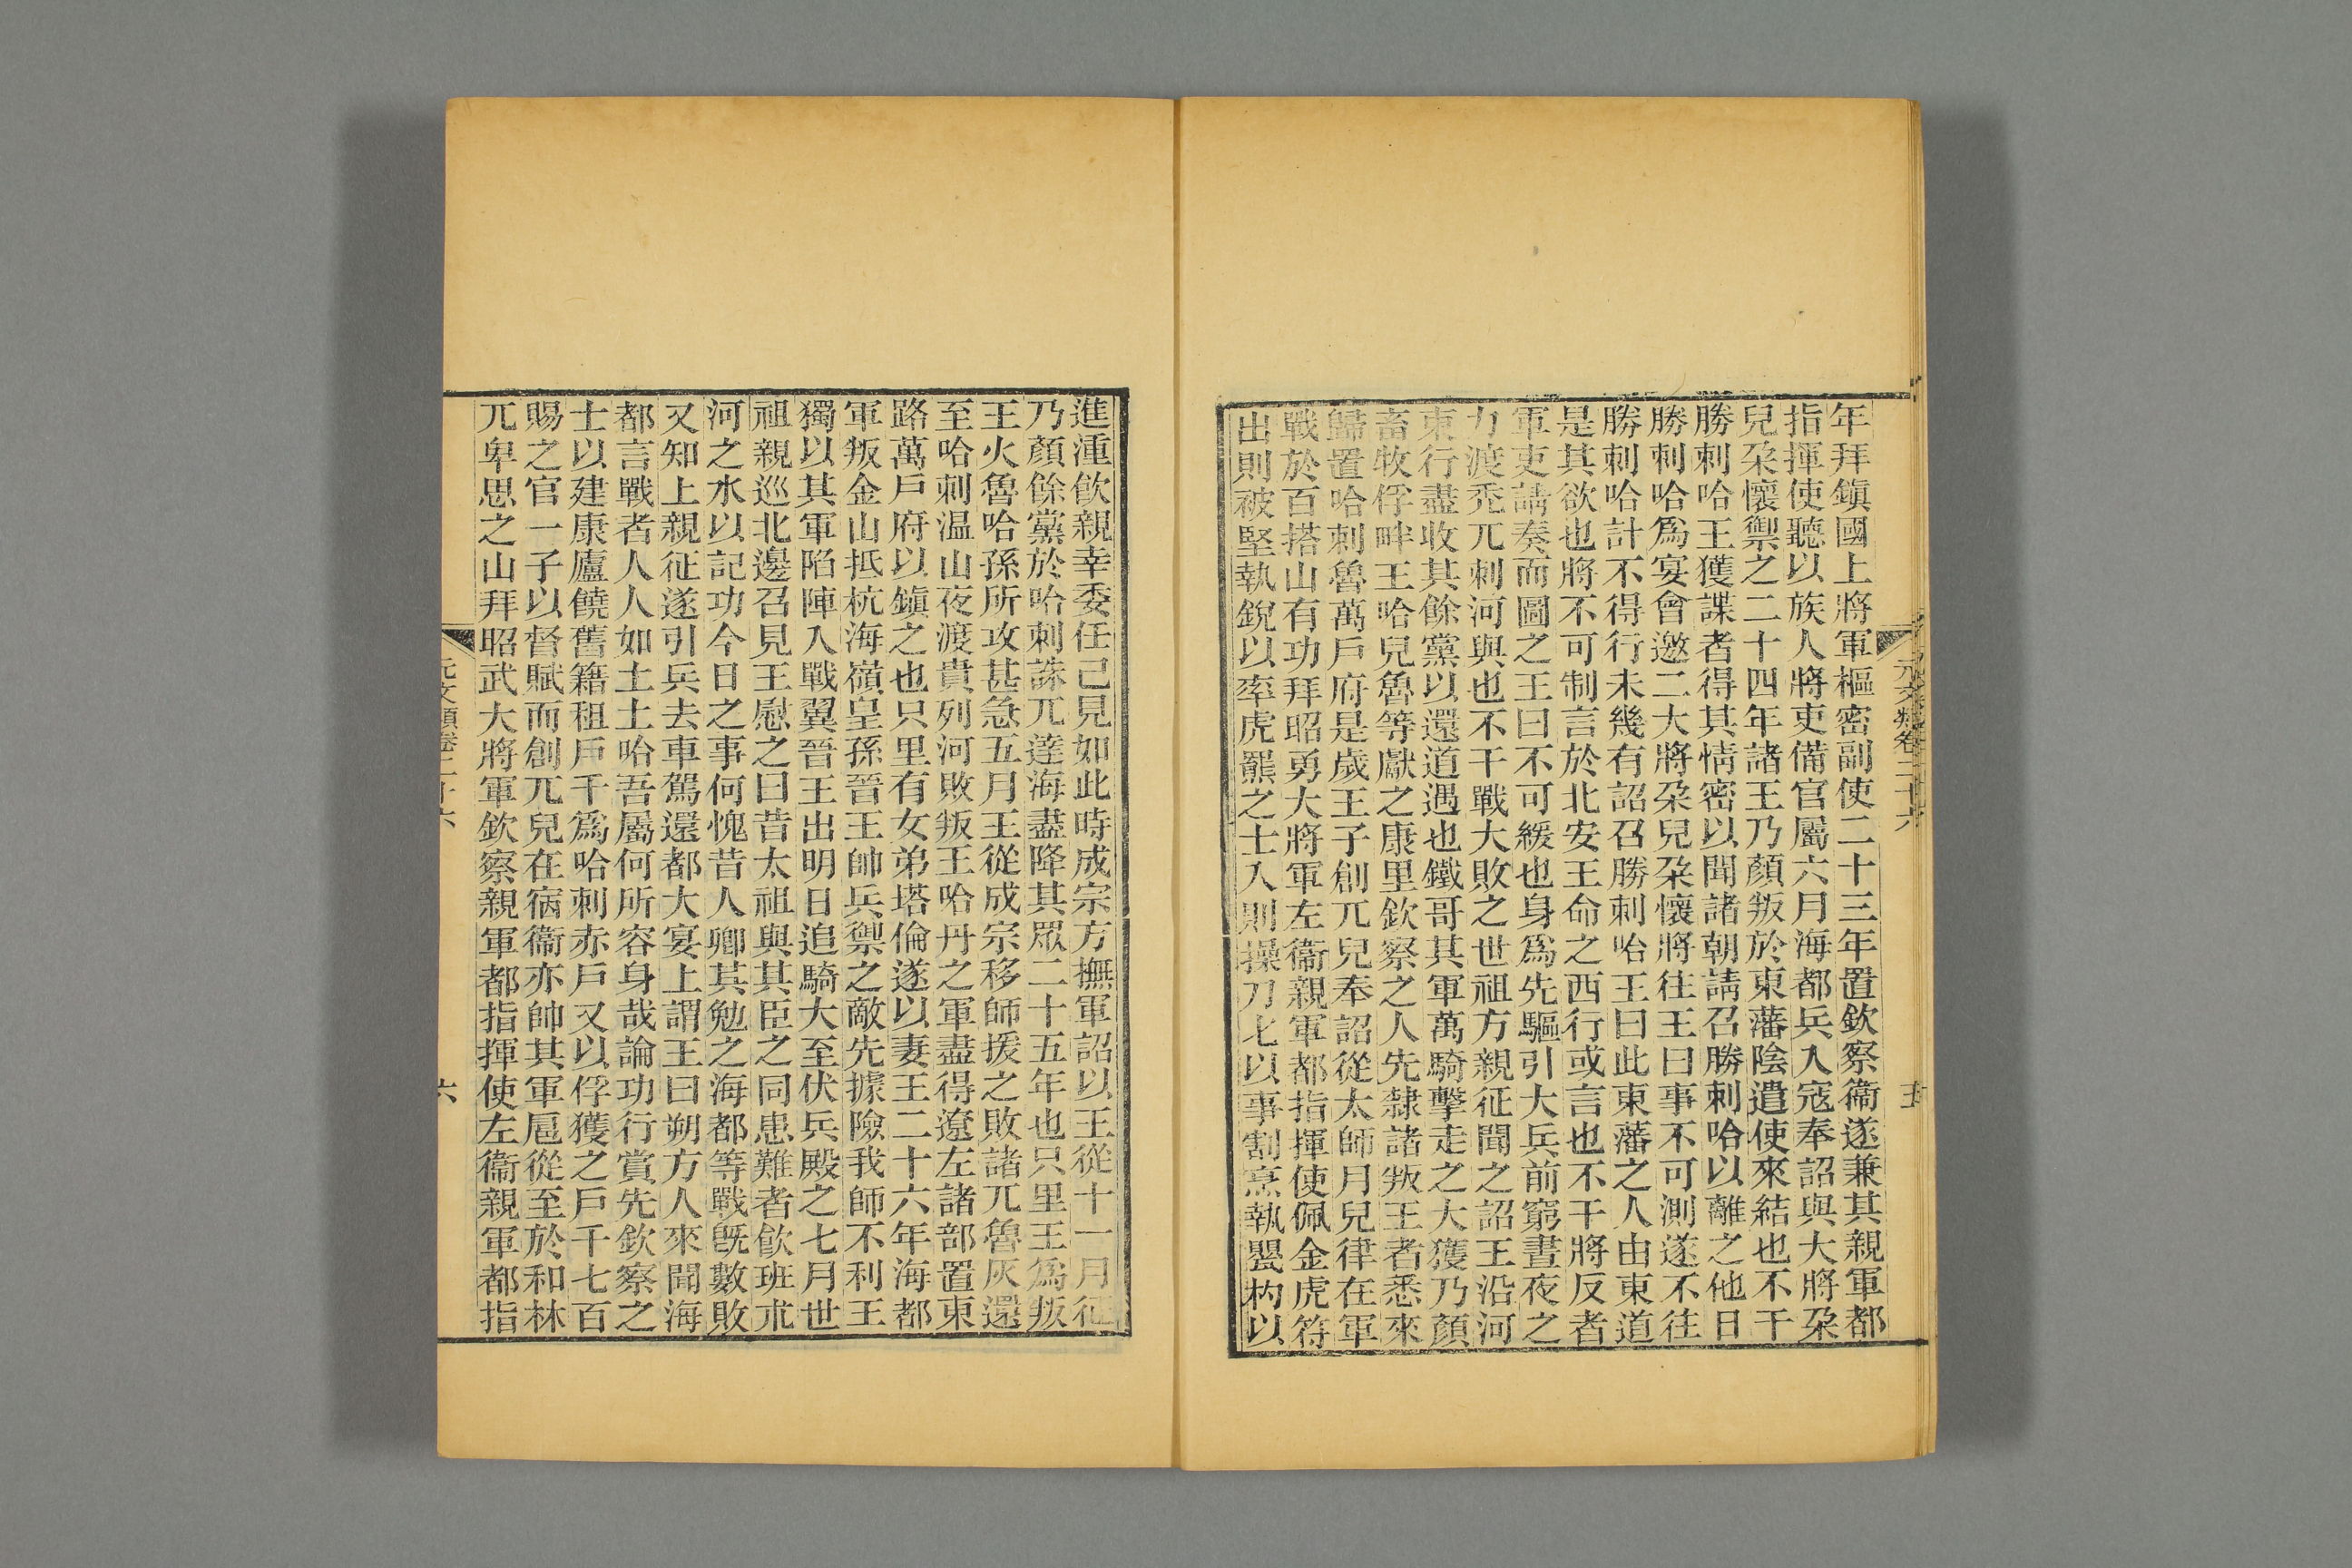 元文類卷二十六
五
年拜鎭國上將軍樞密副使二十三年置欽察衞遂兼其親軍都
指揮使聽以族人將吏備官屬六月海都兵入寇奉詔與大將朶
兒朶懷禦之二十四年諸王乃顏叛於東藩陰遣使來結也不干
勝剌哈王獲諜者得其情密以聞諸朝請召勝剌哈以離之他日
勝剌哈爲宴會邀二大將朶兒朶懷將往王曰事不可測遂不往
勝剌哈計不得行未幾有詔召勝剌哈王曰此東藩之人由東道
是其欲也將不可制言於北安王命之西行或言也不干將反者
軍吏請奏而圖之王曰不可緩也身爲先驅引大兵前窮晝夜之
力渡禿兀剌河與也不干戰大敗之世祖方親征聞之詔王沿河
東行盡收其餘黨以還道遇也鐵哥其軍萬騎擊走之大獲乃顏
畜牧俘畔王哈兒魯等獻之康里欽察之人先隸諸叛王者悉來
歸置哈剌魯萬戶府是歲王子創兀兒奉詔從太師月兒律在軍
戰於百搭山有功拜昭勇大將軍左衞親軍都指揮使佩金虎符
出則被堅執銳以率虎羆之士入則操刀匕以事割烹執斝杓以
進湩飮親幸委任已見如此時成宗方撫軍詔以王從十一月征
乃顏餘黨於哈剌誅兀達海盡降其眾二十五年也只里王爲叛
王火魯哈孫所攻甚急五月王從成宗移師援之敗諸兀魯灰還
至哈剌温山夜渡貴列河敗叛王哈丹之軍盡得遼左諸部置東
路萬戶府以鎭之也只里有女弟塔倫遂以妻王二十六年海都
軍叛金山抵杭海嶺皇孫晉王帥兵禦之敵先據險我師不利王
獨以其軍陷陣入戰翼晉王出明日追騎大至伏兵殿之七月世
祖親巡北邊召見王慰之曰昔太祖與其臣之同患難者飮班朮
河之水以記功今日之事何愧昔人卿其勉之海都等戰旣數敗
又知上親征遂引兵去車駕還都大宴上謂王曰朔方人來聞海
都言戰者人人如土土哈吾屬何所容身哉論功行賞先欽察之
士以建康廬饒舊籍租戶千爲哈剌赤戶又以俘獲之戶千七百
賜之官一子以督賦而創兀兒在宿衞亦帥其軍扈從至於和林
兀卑思之山拜昭武大將軍欽察親軍都指揮使左衞親軍都指
元文類卷二十六
六